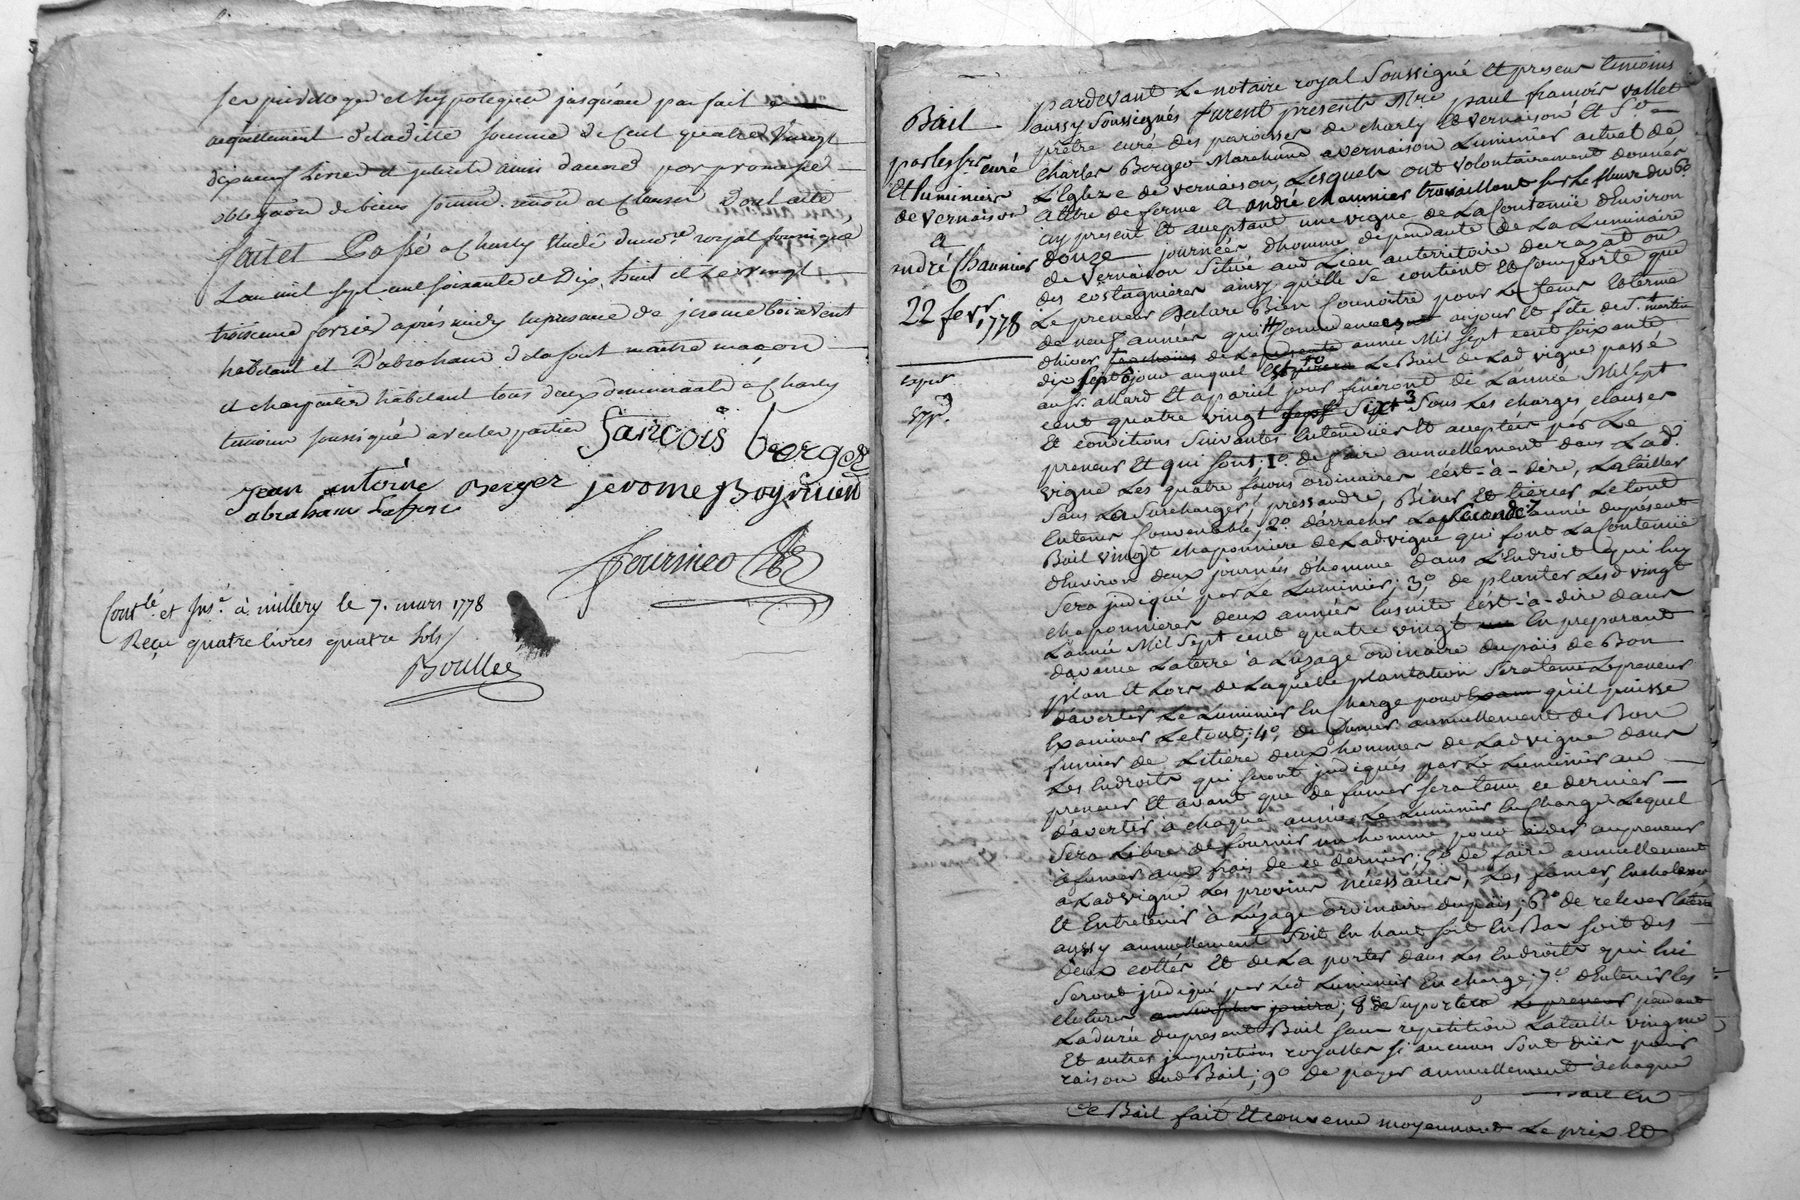 ses privileges et hypoteques jusqueau parfait
acquittement deladitte somme de Cent quatre Vingt
dixneuf livres
obligation de biens soumis. renon. et Clauses Dont acte,
faitet Passé a Charly Etude dunore. royal soussigné
Lan mil sept cent soixante et Dix huit et Le vingt
troisieme fevrier après midy en presence de jerome boirivent
habitant et D'abraham delafont maitre macon
et charpentier habitant tous deux demeurants a Charly
temoins soussignés avec les parties
francois berger
jean antoine Berger jerome Boyrivent
abraham Lafont
Fournier
Contlé et Insé. à millery le 7. mars 1778
Reçu quatre livres quatre sols
Boullee
Bail
par les srs curé
Et luminier
de vernaison
a
andré Chaumier
22 fevr. 1778
expé.
pardevant Le notaire royal Soussigné Et presens temoins
aussy Soussignés furent presents Mre paul francois vallet
prêtre curé des paroisses de charly Et vernaison Et Sr.
Charles Berger Marchand a vernaison Luminier actuel de
L'Eglize de vernaison, Lesquels ont volontairement donner
Attre de ferme A andré chaumier travaillant
icy present Et aceptant une vigne de La Contenüe d'Environ
douze journées d'homme dependante de La Luminaire
de Vernaison Située aud Lieu auterritoire durazat ou
des costagnieres ainsy qu'elle Se contient Et Comporte que
Le preneur Declare Bien Connoitre pour Le tems Et terme
de neuf années qui Commencees aujour Et fête de St. martin
d'hiver de La annee Mil Sept cent Soixante
dix Sept jour auquel Le Bail de Lad vigne passé
au Sr. allard Et apareil jour finiront de L'année Mil Sept
cent quatre vingt Six Sous Les charges, clauses
Et conditions Suivantes Entendües Et aceptées par Le
preneur Et qui Sont; 1o. de faire annuellement dans Lad.
vigne Les quatre facons ordinaires c'est-à-dire, La tailler
Sans La Surcharger, pressandre, Biner Et tiercer Le tout
Entems Convenable, 2o. d'arracher La Seconde année duprésent
Bail vingt chaponniere de Lad vigne qui font La Contenüe
d'Environ deux journées d'homme dans L'Endroit qui luy
Sera indiqué par Le Luminier; 3o. de planter Lesd vingt
chaponnieres deux années Ensuite c'est-à-dire dans
L'année Mil Sept cent quatre vingt En preparant
davance La terre à L'uzage ordinaire dupaïs de Bon
plan Et Lors de Laquelle plantation Sera tenu Le preneur
d'avertir Le Luminier En Charge pour qu'il puisse
Examiner Le tout; 4o. de fumer annuellement de Bon
fumier de Litiere deux hommes de Lad vigne dans
Les Endroits qui Seront indiqués par Le Luminier au
preneur Et avant que de fumer Sera tenu ce dernier
d'avertir à chaque année Le Luminier En Charge Lequel
Sera Libre de fournir un homme pour aider au preneur
à fumer aux frais de ce dernier; 5o. de faire annuellement
a Lad vigne Les provins nécessaires, Les fumer,
Et Entretenir à L'uzage ordinaire dupaïs; 6o. de relever La terre
aussy annuellement Soit En haut Soit En Bas Soit des
deux cottés Et de La porter dans Les Endroits qui lui
Seront indiqué par Led Luminier En charge; 7o. d'Entretenir Les
clotures; 8o de Suporter Le preneur pendant
La durée dupresent Bail Sans repetition La taille vingme
Et autres impositions royalles Si aucunes Sont dües pour
raison dud Bail; 9o. de payer annuellement à chaque
Bail En
Ce Bail fait Et convenu moyennant Le prix Et